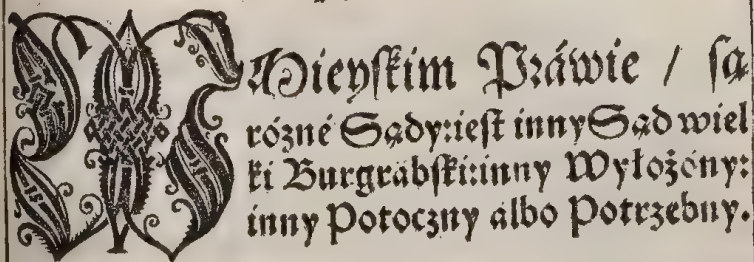 W Mieyſkim Práwie / ſą
rózné Sądy: ieſt inny Sąd wiel
ki Burgrabſki: inny Wyłożóny:
inny Potoczny álbo Potrzebny.